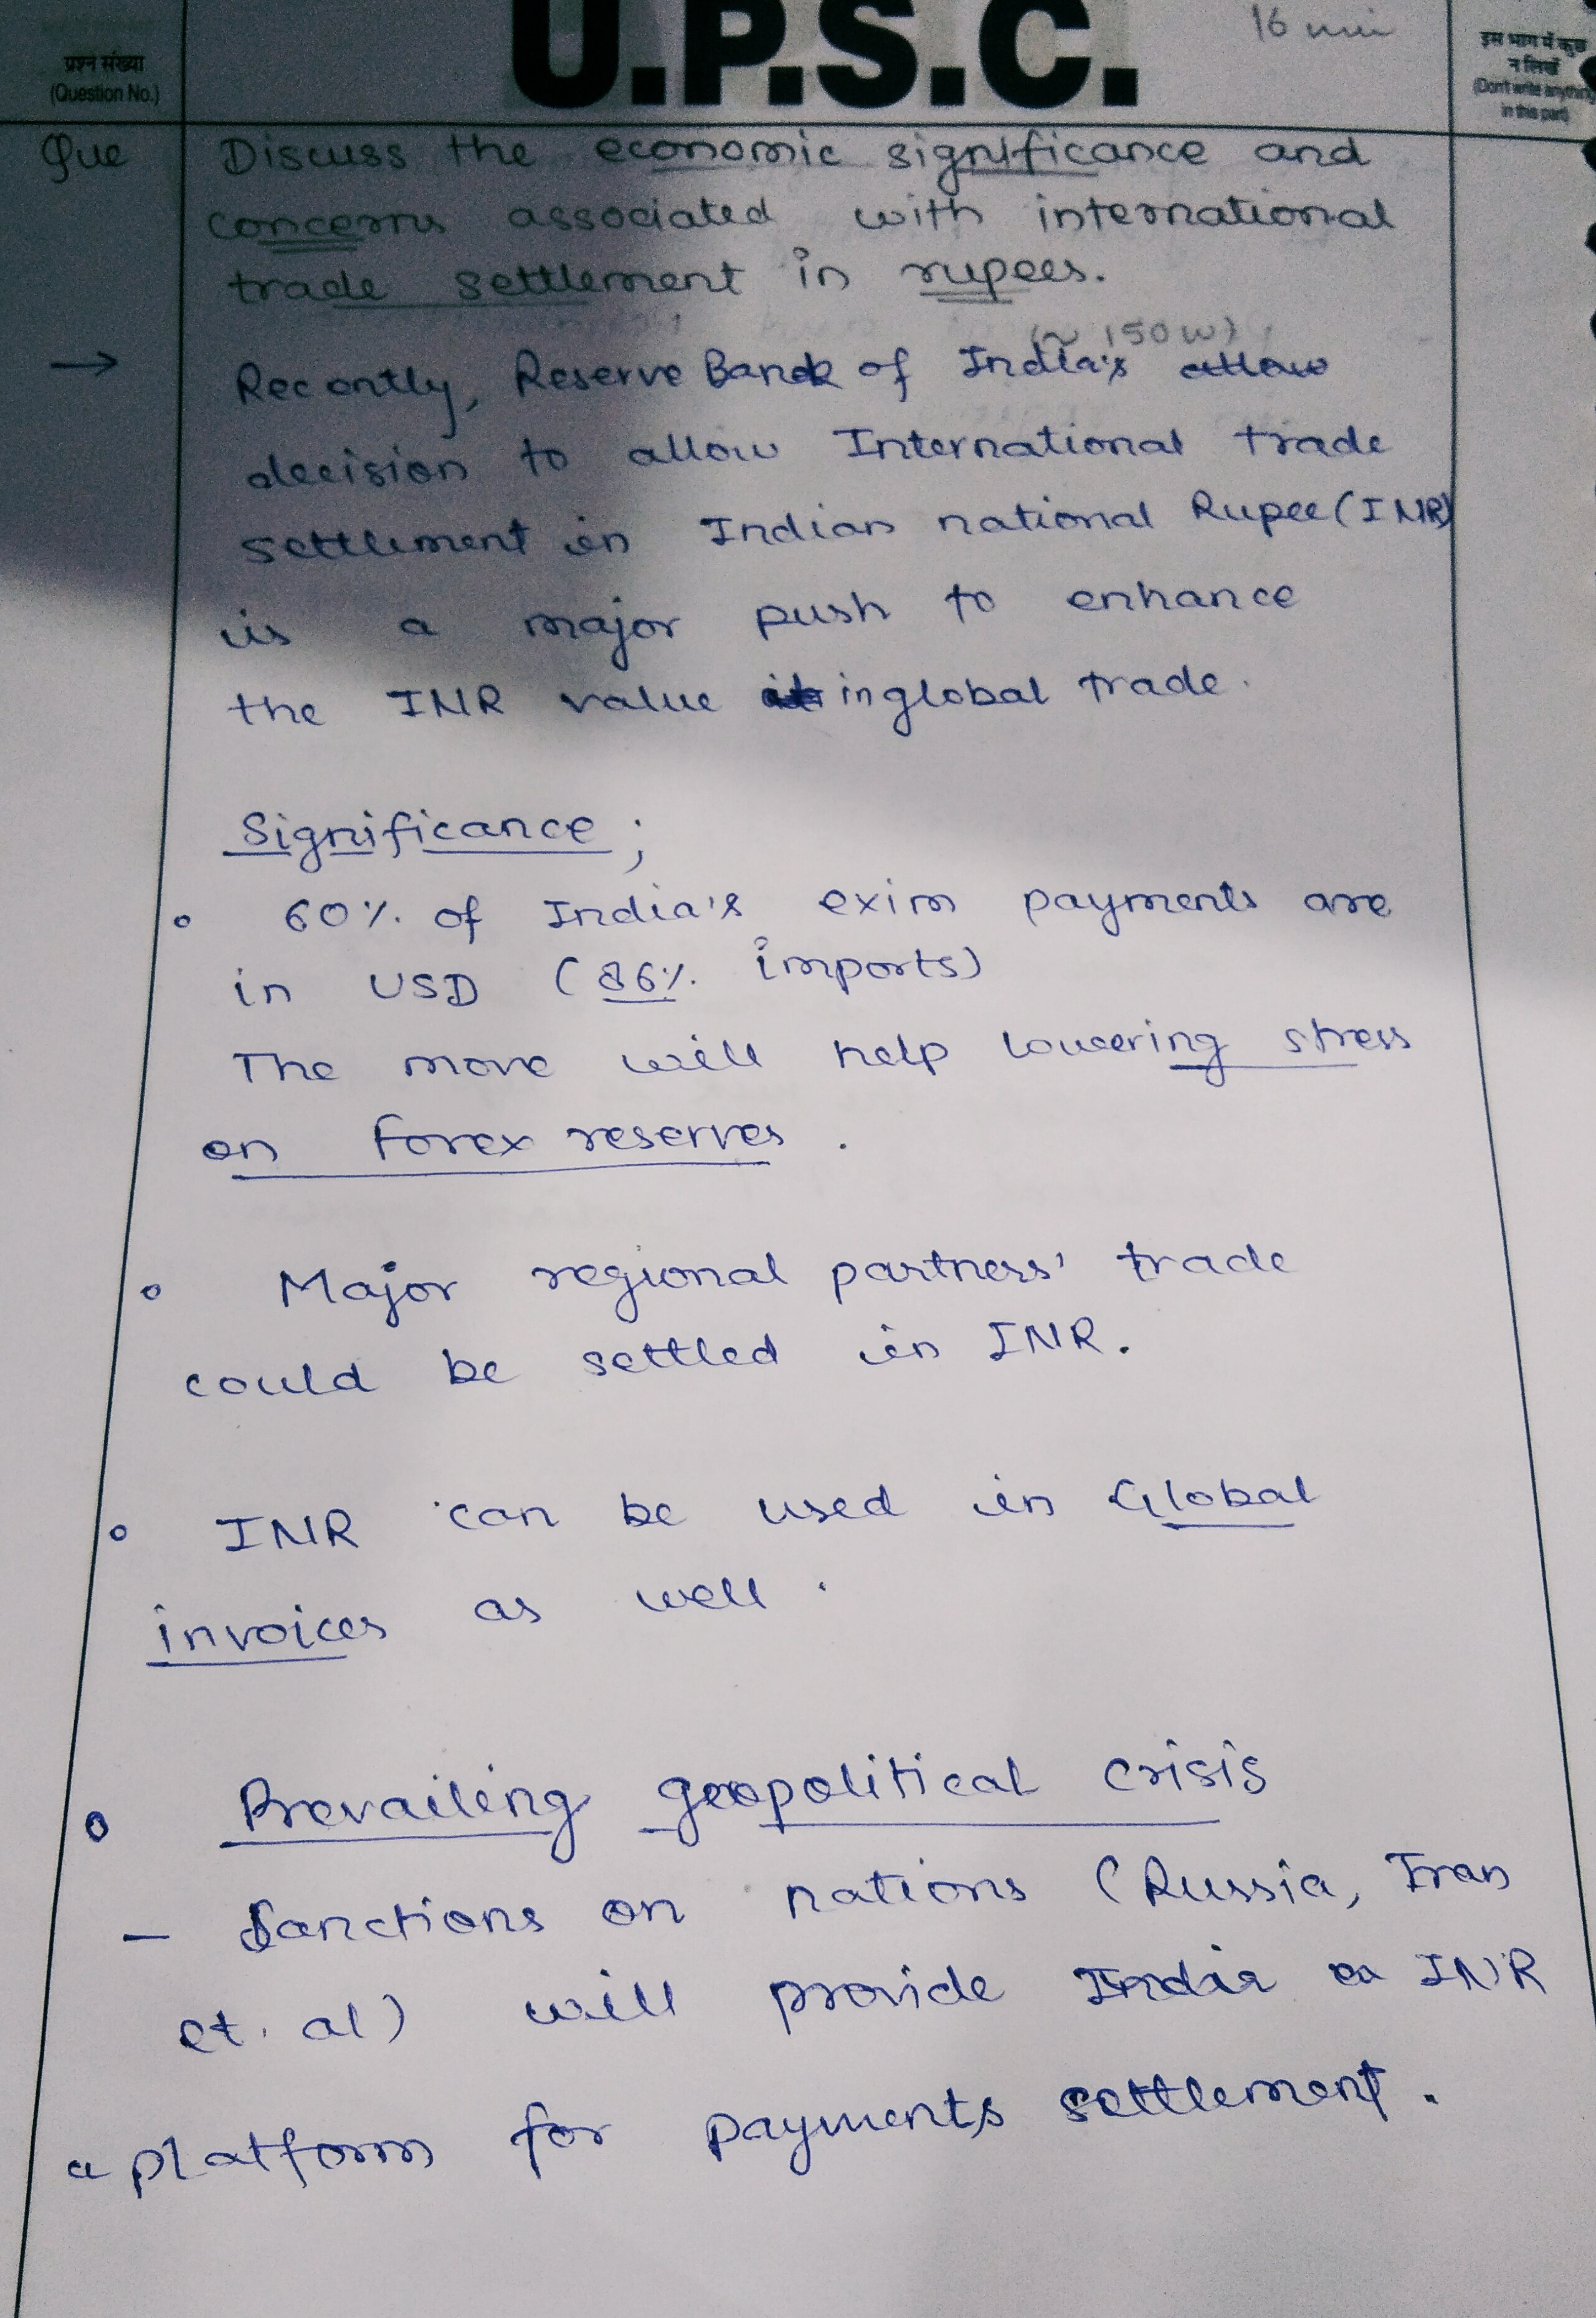 16 min
प्रश्न संख्या
(Question No.)
U.P.S.C.
इस भाग में कुछ
न लिखें
(Don't write anything
in this part)
Que Discuss the economic significance and
concerns associated with international
trade settlement in rupees.
(~ 150 W)
→ Recently, Reserve Bank of India's allow
decision to allow International trade
settlement in Indian national Rupee (INR)
is a major push to enhance
the INR value in global trade.
Significance ;
60% of India's exim payments are
in USD (86% imports)
The move will help lowering stress
on forex reserves .
Major regional partners' trade
could be settled in INR.
INR can be used in Global
invoices as well .
Prevailing geopolitical crisis
— Sanctions on nations (Russia, Iran
et. al) will provide India INR
a platform for payments settlement .